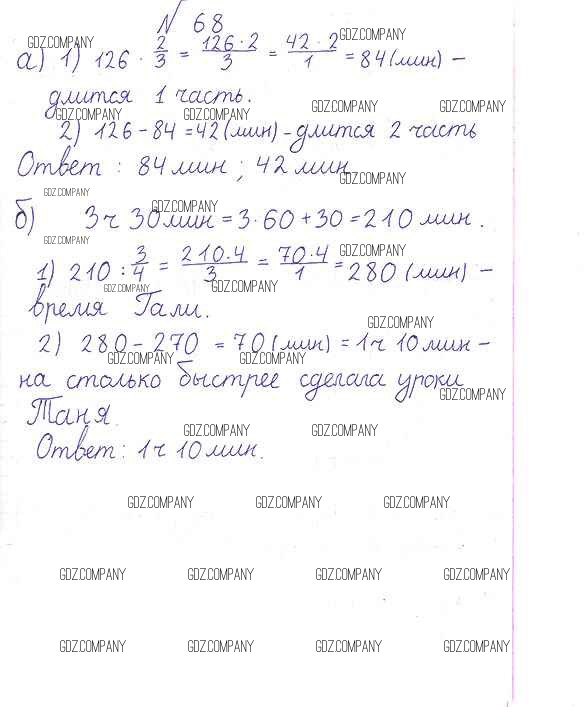 № 68
GDZ.COMPANY GDZ.COMPANY
а) 1) 126 · 2/3 = 126·2/3 = 42·2/1 = 84 (мин) –
длится 1 часть.
GDZ.COMPANY GDZ.COMPANY GDZ.COMPANY GDZ.COMPANY
2) 126 – 84 = 42 (мин) – длится 2 часть
Ответ : 84 мин ; 42 мин
GDZ.COMPANY
GDZ.COMPANY GDZ.COMPANY
б) 3ч 30мин = 3·60 + 30 = 210 мин.
GDZ.COMPANY GDZ.COMPANY
1) 210 : 3/4 = 210·4/3 = 70·4/1 = 280 (мин) –
GDZ.COMPANY GDZ.COMPANY
время Гали.
GDZ.COMPANY
2) 280 – 270 = 70 (мин) = 1ч 10 мин –
GDZ.COMPANY GDZ.COMPANY
на столько быстрее сделала уроки
GDZ.COMPANY
Таня.
GDZ.COMPANY GDZ.COMPANY
Ответ: 1ч 10 мин.
GDZ.COMPANY GDZ.COMPANY GDZ.COMPANY
GDZ.COMPANY GDZ.COMPANY GDZ.COMPANY GDZ.COMPANY
GDZ.COMPANY GDZ.COMPANY GDZ.COMPANY GDZ.COMPANY